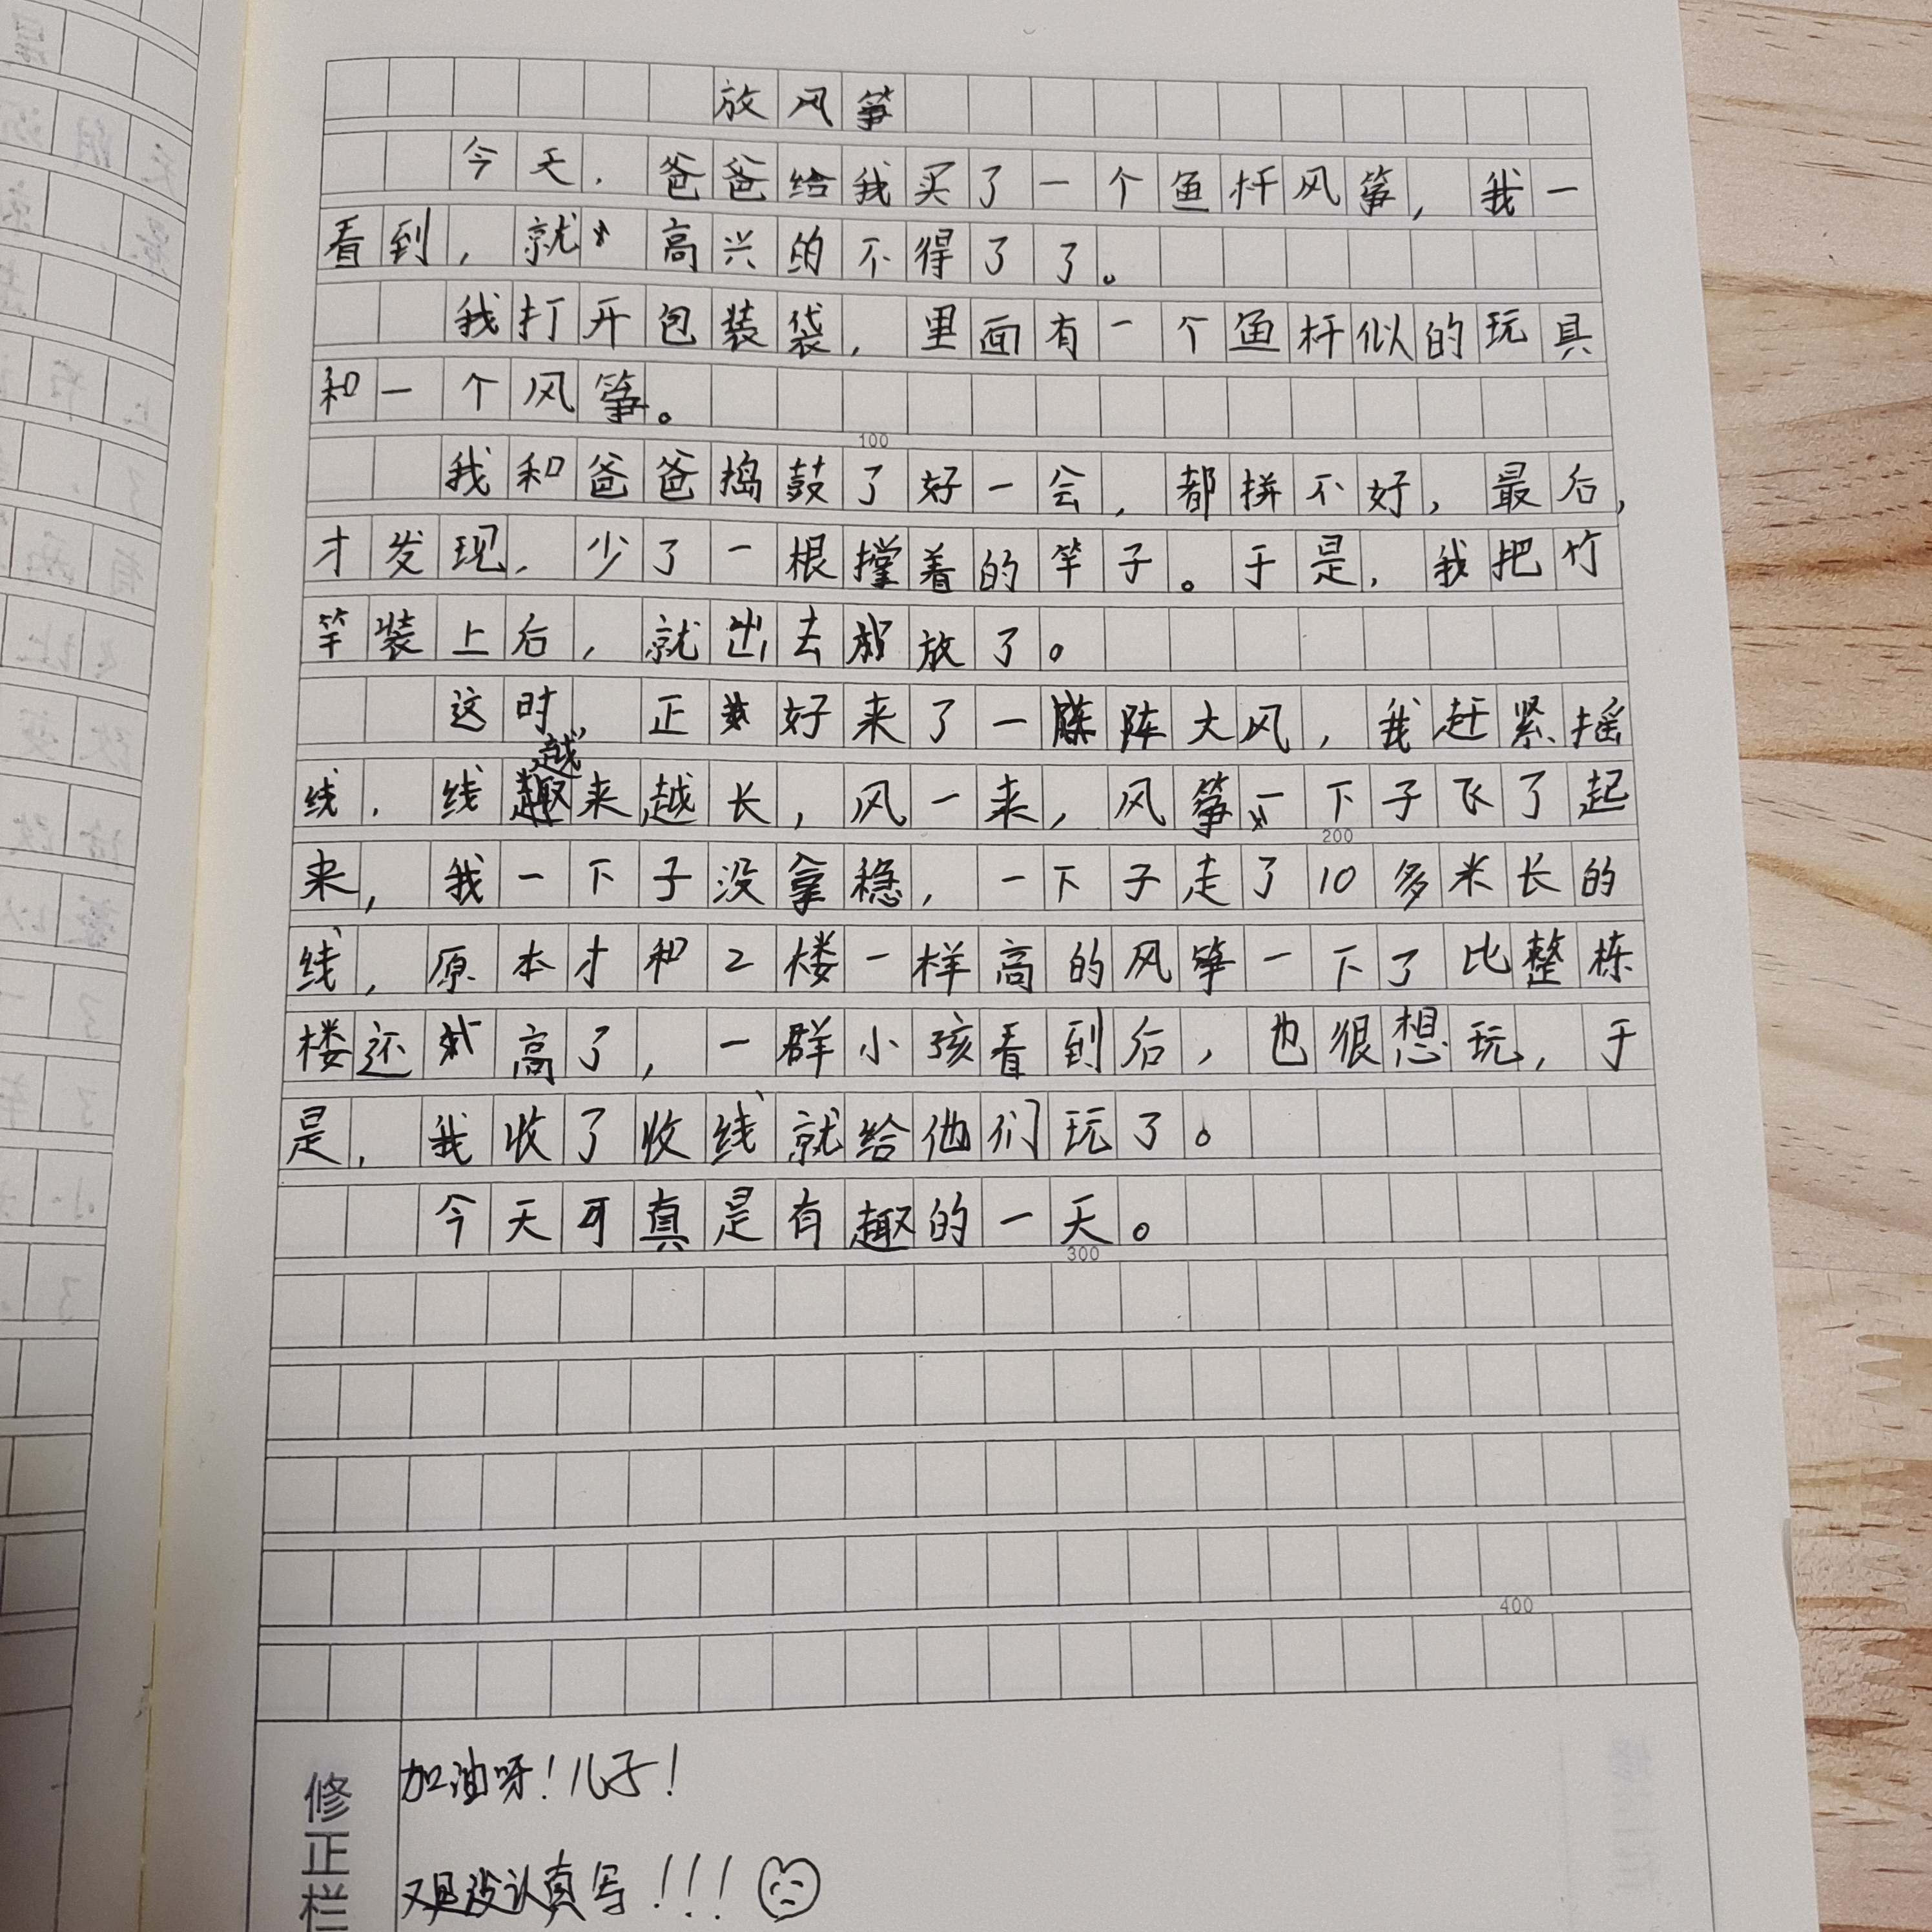 放风筝
今天，爸爸给我买了一个鱼杆风筝，我一
看到，就高兴的不得了了。
我打开包装袋，里面有一个鱼杆似的玩具
和一个风筝。
100
我和爸爸捣鼓了好一会，都拼不好，最后，
才发现，少了一根撑着的竿子。于是，我把竹
竿装上后，就出去放了。
这时，正好来了一阵大风，我赶紧摇
线，线越来越长，风一来，风筝一下子飞了起
200
来，我一下子没拿稳，一下子走了10多米长的
线，原本才和2楼一样高的风筝一下了比整栋
楼还高了，一群小孩看到后，也很想玩，于
是，我收了收线就给他们玩了。
今天可真是有趣的一天。
300
400
修正栏
加油呀！儿子！
又是没认真写！！！